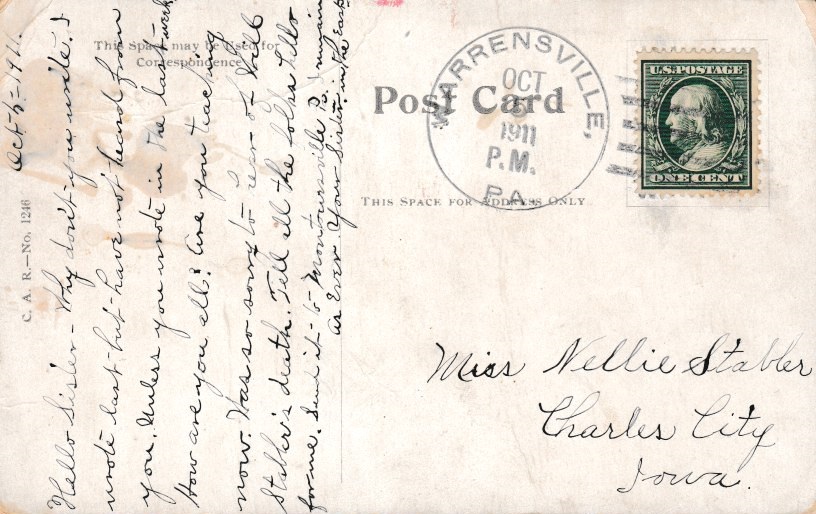 This Space may be Used for
Correspondence
Post Card
THIS SPACE FOR ADDRESS ONLY
C. A. R.—No. 1246
WARRENSVILLE,
OCT
5
1911
P.M.
PA.
U.S. POSTAGE
ONE CENT
Oct-5-1911.
Hello Sister - Why don't you write. I
wrote last but have not heard from
you. Unless you wrote in the last week
How are you all? Are you teaching
now. Was so sorry to hear of Will
Stabler's death. Tell all the folks hello
for me. Send it to Montoursville Pa. I remain
as Ever. Your Sister. in the East
Miss Nellie Stabler
Charles City
Iowa.